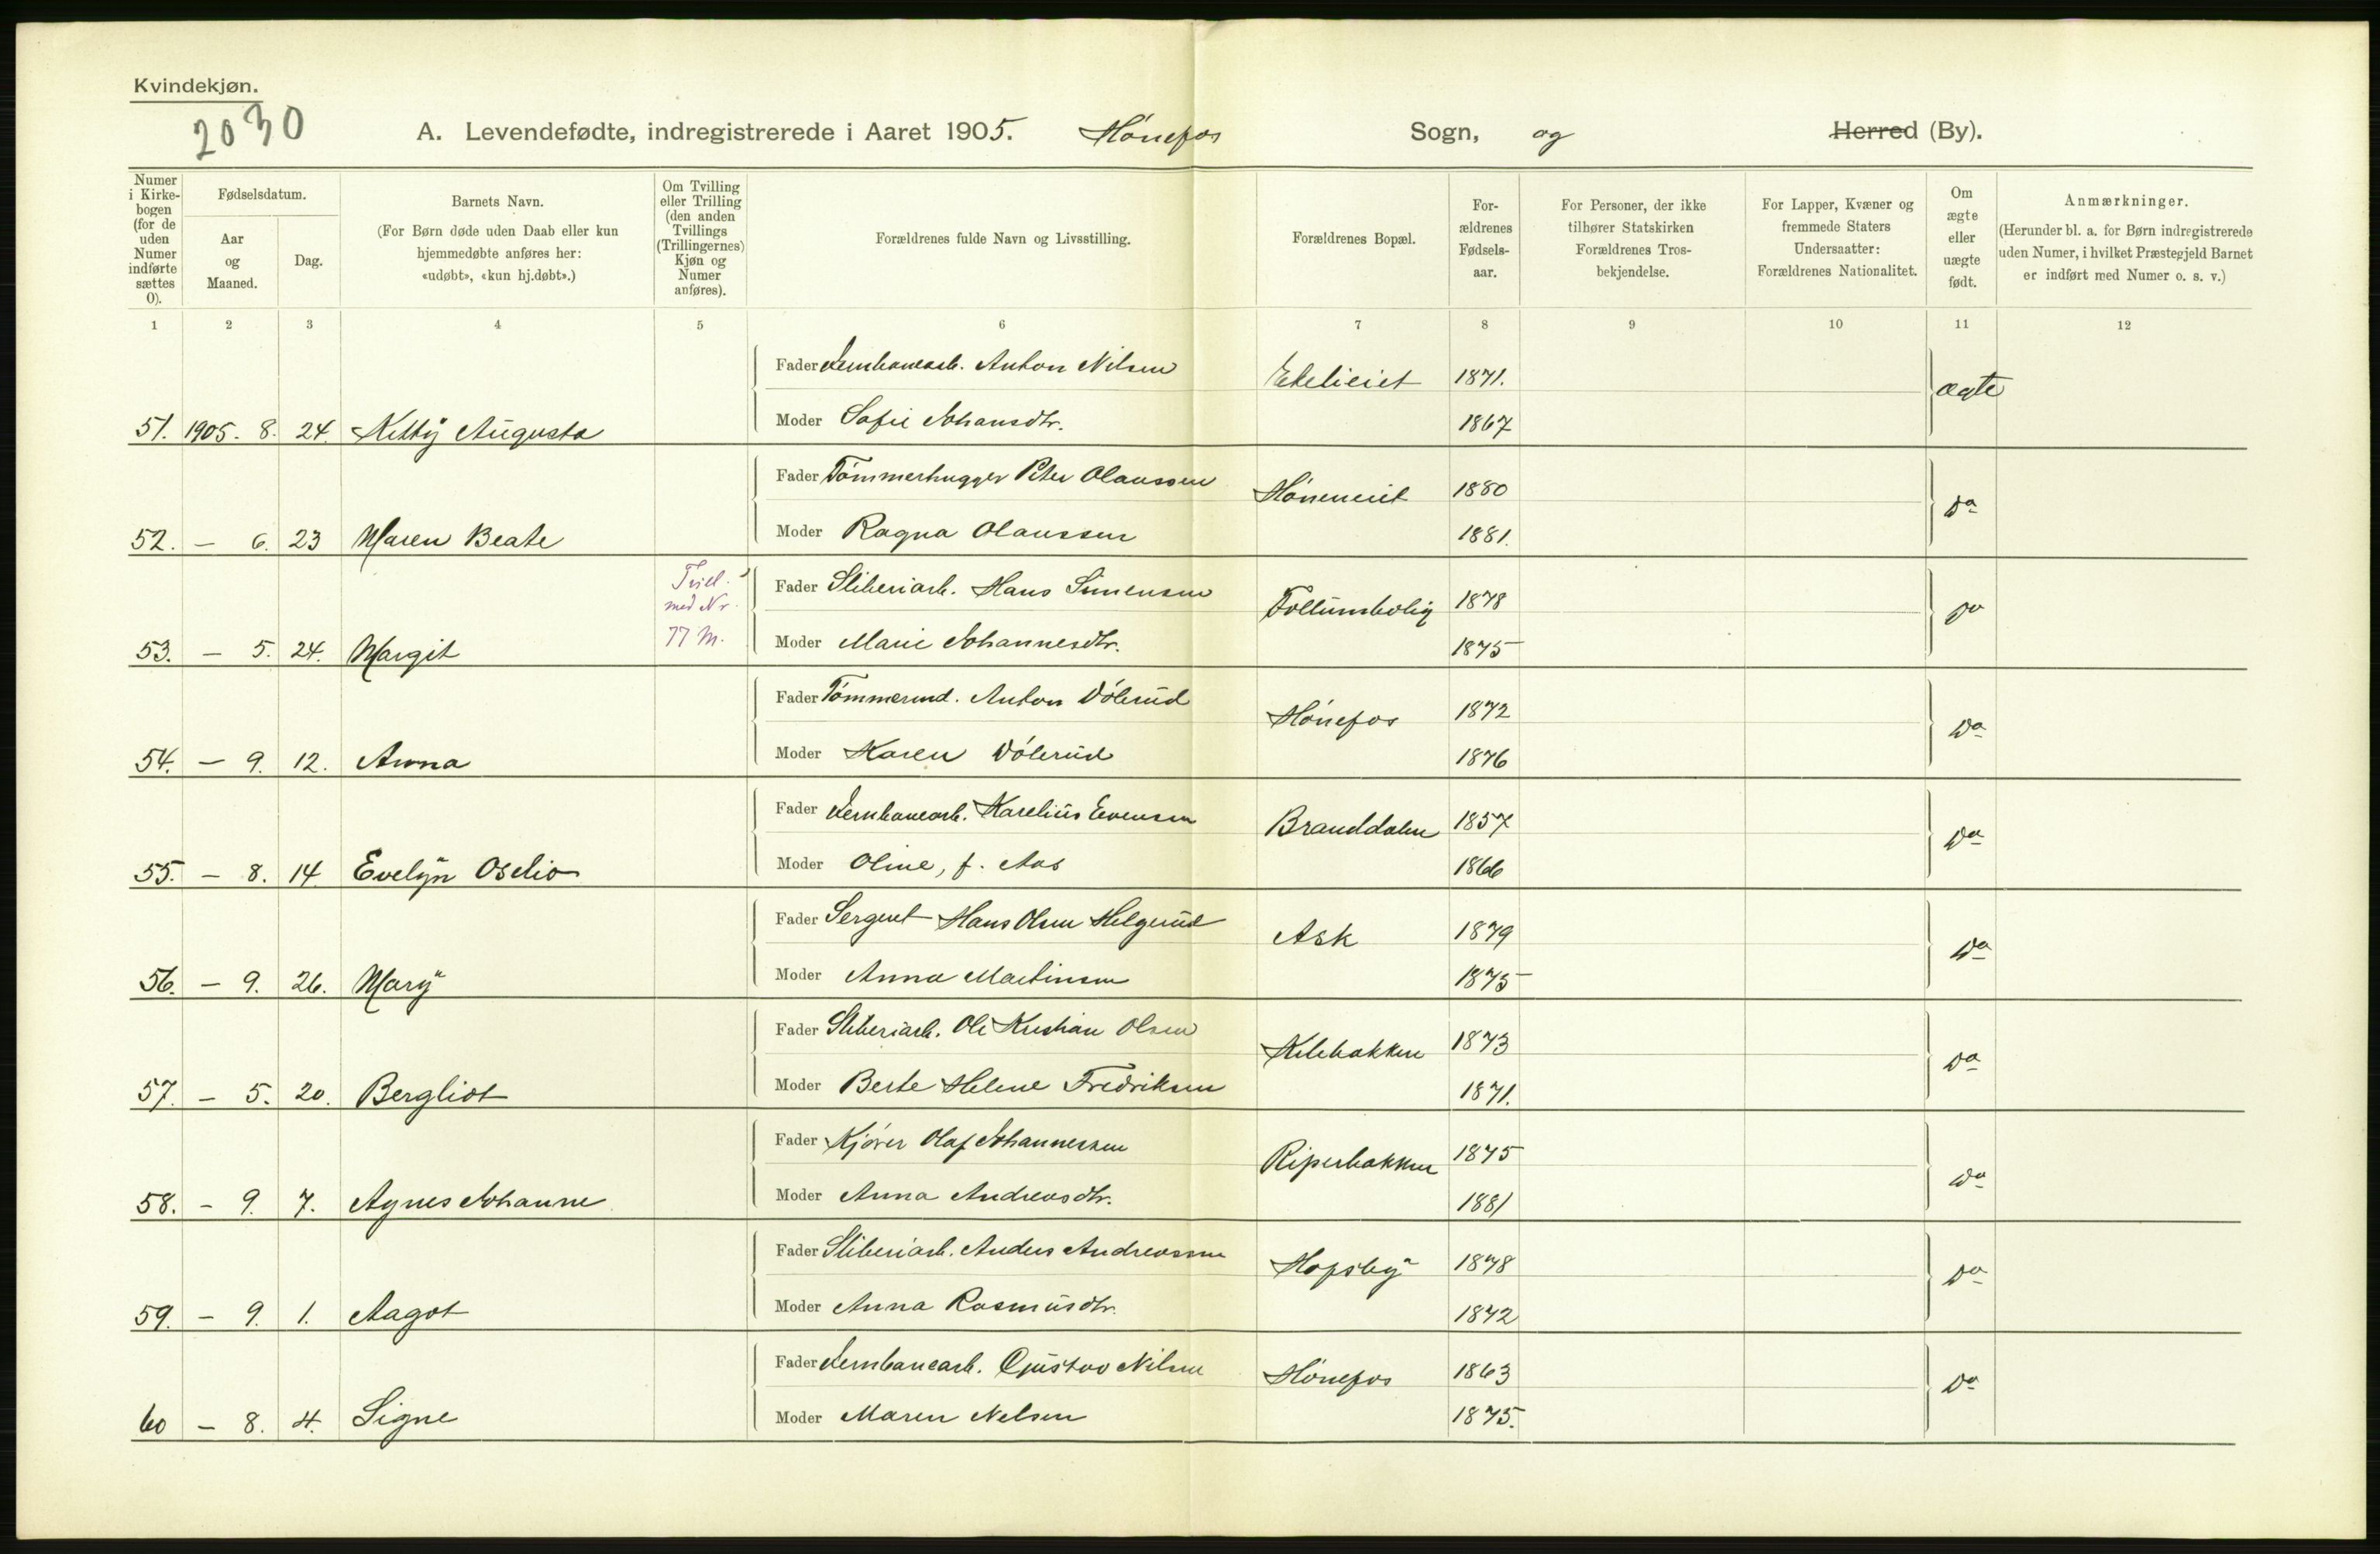 Kvindekjøn.
2030
A. Levendefødte, indregistrerede i Aaret 1905. Hönefos Sogn, og Herred (By).
Numer i Kirke-bogen (for de uden Numer indførte sættes 0).
Fødselsdatum.
Aar og Maaned.
Dag.
Barnets Navn.
(For Børn døde uden Daab eller kun hjemmedøbte anføres her: «udøbt», «kun hj.døbt».)
Om Tvilling eller Trilling (den anden Tvillings (Trillingernes) Kjøn og Numer anføres).
Forældrenes fulde Navn og Livsstilling.
Forældrenes Bopæl.
For-ældrenes Fødsels-aar.
For Personer, der ikke tilhører Statskirken Forældrenes Tros-bekjendelse.
For Lapper, Kvæner og fremmede Staters Undersaatter: Forældrenes Nationalitet.
Om ægte eller uægte født.
Anmærkninger.
(Herunder bl. a. for Børn indregistrerede uden Numer, i hvilket Præstegjeld Barnet er indført med Numer o. s. v.)
1 2 3 4 5 6 7 8 9 10 11 12
Fader Jernbanearb. Anton Nilsen 1871. ægte
51. 1905. 8. 24. Kitty Augusta Moder Sofie Johansdtr. 1867
Fader Tömmerhugger Peter Olaussen Höneneiet 1880 Do
52. — 6. 23 Maren Beate Moder Ragna Olaussen 1881.
Tvill. med Nr. 77 M. Fader Sliberiarb. Hans Simensen Follumbolig 1878 Do
53. — 5. 24. Margit Moder Marie Johannesdtr. 1875
Fader Tömmermd. Anton Dölerud Hönefos 1872 Do
54. — 9. 12. Anna Moder Karen Dölerud 1876
Fader Jernbanearb. Karelius Evensen Branddalen 1857 Do
55. — 8. 14. Evelyn Oselio Moder Oline, f. Aas 1866
Fader Sergent Hans Olsen Helgerud Ask 1879 Do
56. — 9. 26. Mary Moder Anna Martinsen 1875
Fader Sliberiarb. Ole Kristian Olsen Kilebakken 1873 Do
57. — 5. 20. Bergliot Moder Berte Helene Fredriksen 1871.
Fader Kjörer Olaf Johannessen Riperbakken 1875 Do
58. — 9. 7. Agnes Johanne Moder Anna Andreasdtr. 1881
Fader Sliberiarb. Anders Andreassen Hofsby 1878 Do
59. — 9. 1. Aagot Moder Anna Rasmusdtr. 1872
Fader Jernbanearb. Gustav Nilsen Hönefos 1863 Do
60 — 8. 4. Signe Moder Maren Nelsen 1875.